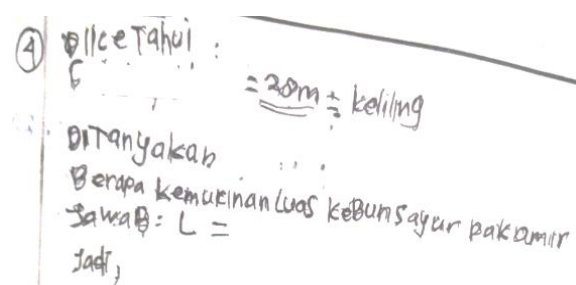 ④ Diketahui :
= 28m = keliling
Ditanyakan
Berapa kemukinan luas kebun sayur pak Amir
Jawab : L =
Jadi,